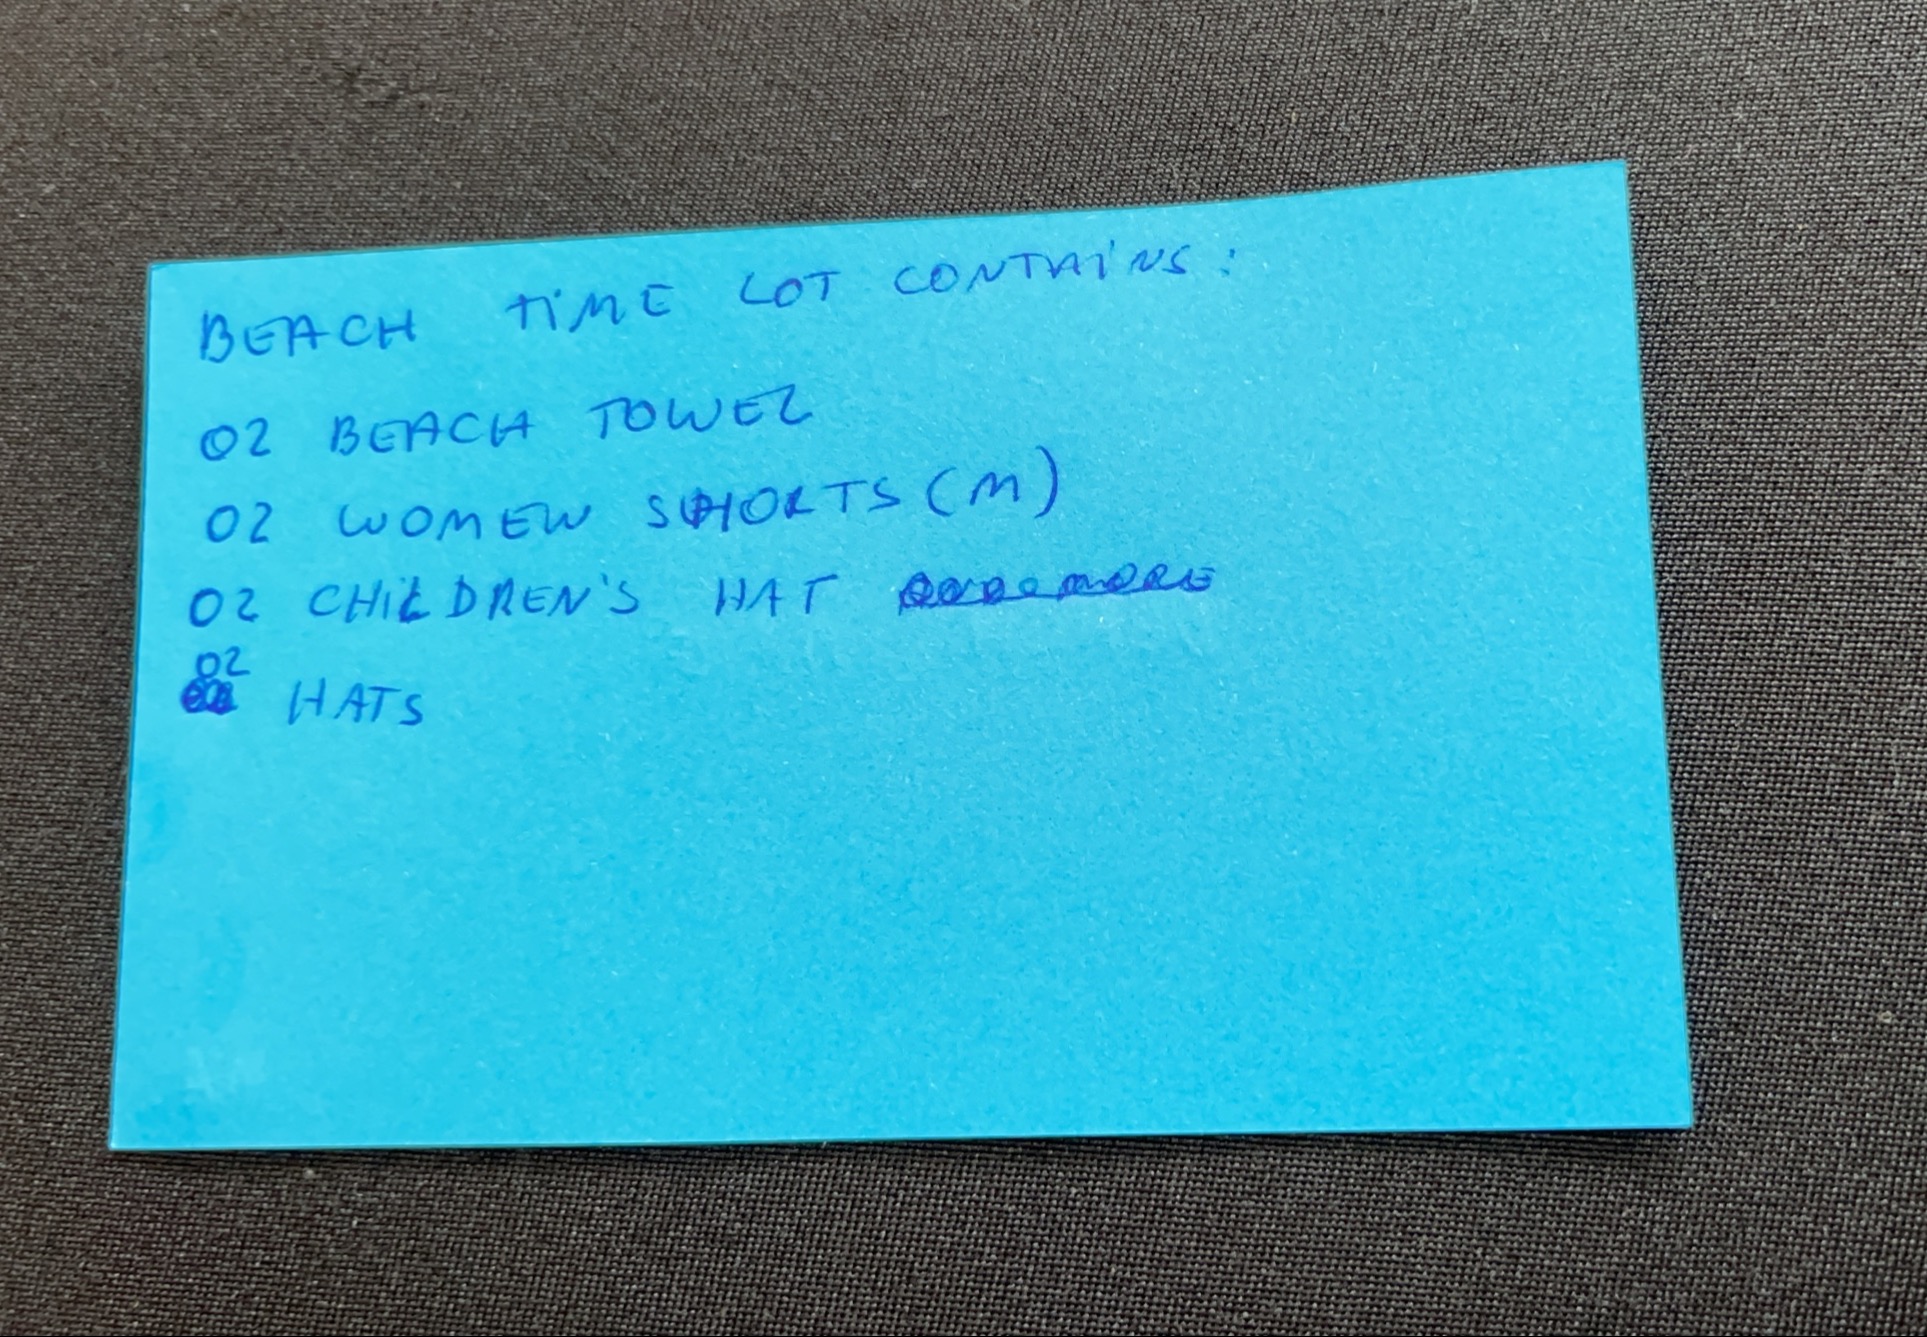 BEACH TIME LOT CONTAINS:
02 BEACH TOWEL
02 WOMEN SHORTS (M)
02 CHILDREN'S HAT
02 HATS